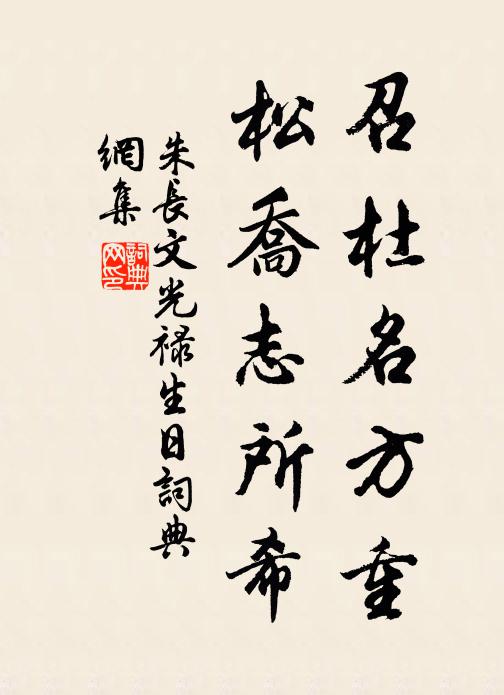 召杜名方重
松喬志所希
朱長文光祿生日詞典
網集
詞典网印